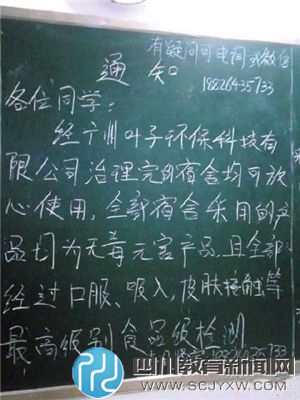 有疑问可电询或微信
18826435733
通知
各位同学:
经广州叶子环保科技有
限公司治理完的宿舍均可放
心使用,全部宿舍采用的产
品均为无毒无害产品,且全部
经过口服、吸入,皮肤接触等
最高级别食品级检测
18826435733
四川教育新闻网
WWW.SCJYXW.COM